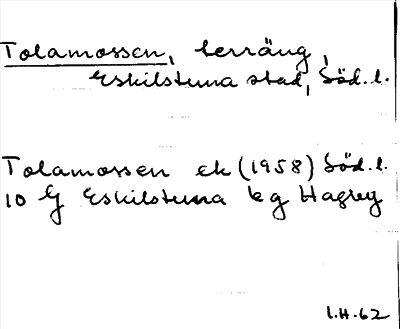 Tolamossen, terräng,
Eskilstuna stad, Söd. l.
Tolamossen ek (1958) Söd. l.
10 G Eskilstuna bg Hagby
I.H. 62